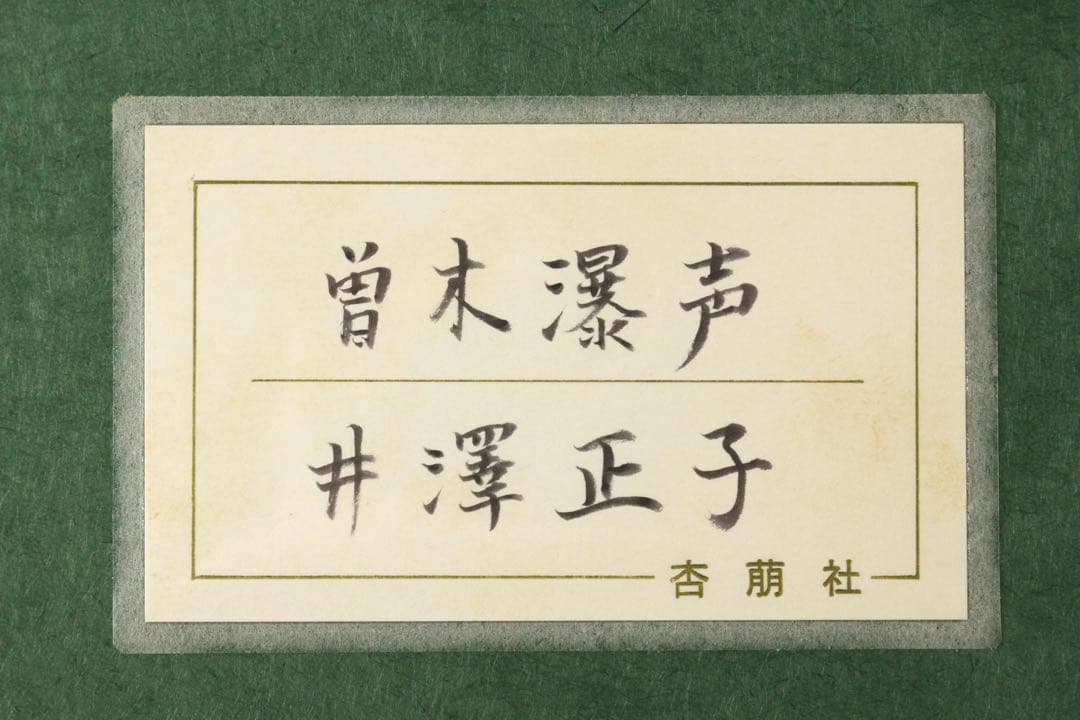 曽木瀑声
井澤正子
杏萠社